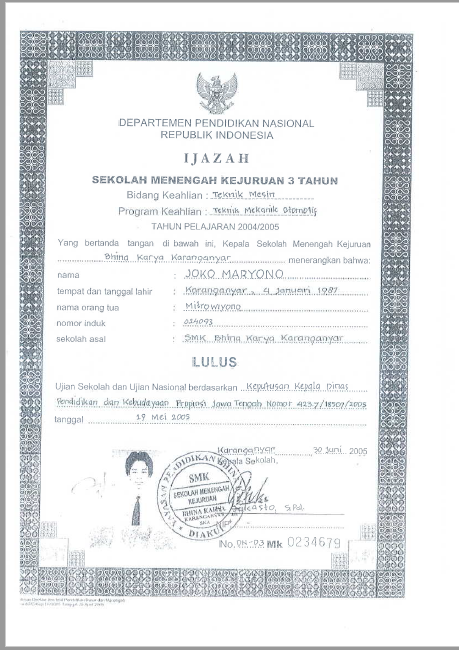 DEPARTEMEN PENDIDIKAN NASIONAL
REPUBLIK INDONESIA
IJAZAH
SEKOLAH MENENGAH KEJURUAN 3 TAHUN
Bidang Keahlian : Teknik Mesin
Program Keahlian : Teknik Mekanik Otomotif
TAHUN PELAJARAN 2004/2005
Yang bertanda tangan di bawah ini, Kepala Sekolah Menengah Kejuruan
Bhina Karya Karanganyar menerangkan bahwa:
nama : JOKO MARYONO
tempat dan tanggal lahir : Karanganyar, 4 Januari 1987
nama orang tua : Mitrowiyono
nomor induk : 024093
sekolah asal : SMK Bhina Karya Karanganyar
LULUS
Ujian Sekolah dan Ujian Nasional berdasarkan Keputusan Kepala Dinas
Pendidikan dan Kebudayaan Propinsi Jawa Tengah Nomor 423.7/18507/2005
tanggal 29 Mei 2005
Karanganyar 30 Juni 2005
Kepala Sekolah,
SMK
SEKOLAH MENENGAH
KEJURUAN
BHINA KARYA
KARANGANYAR
SKA
DIAKUI
S.Pd
No. 04-03 Mk 0234679